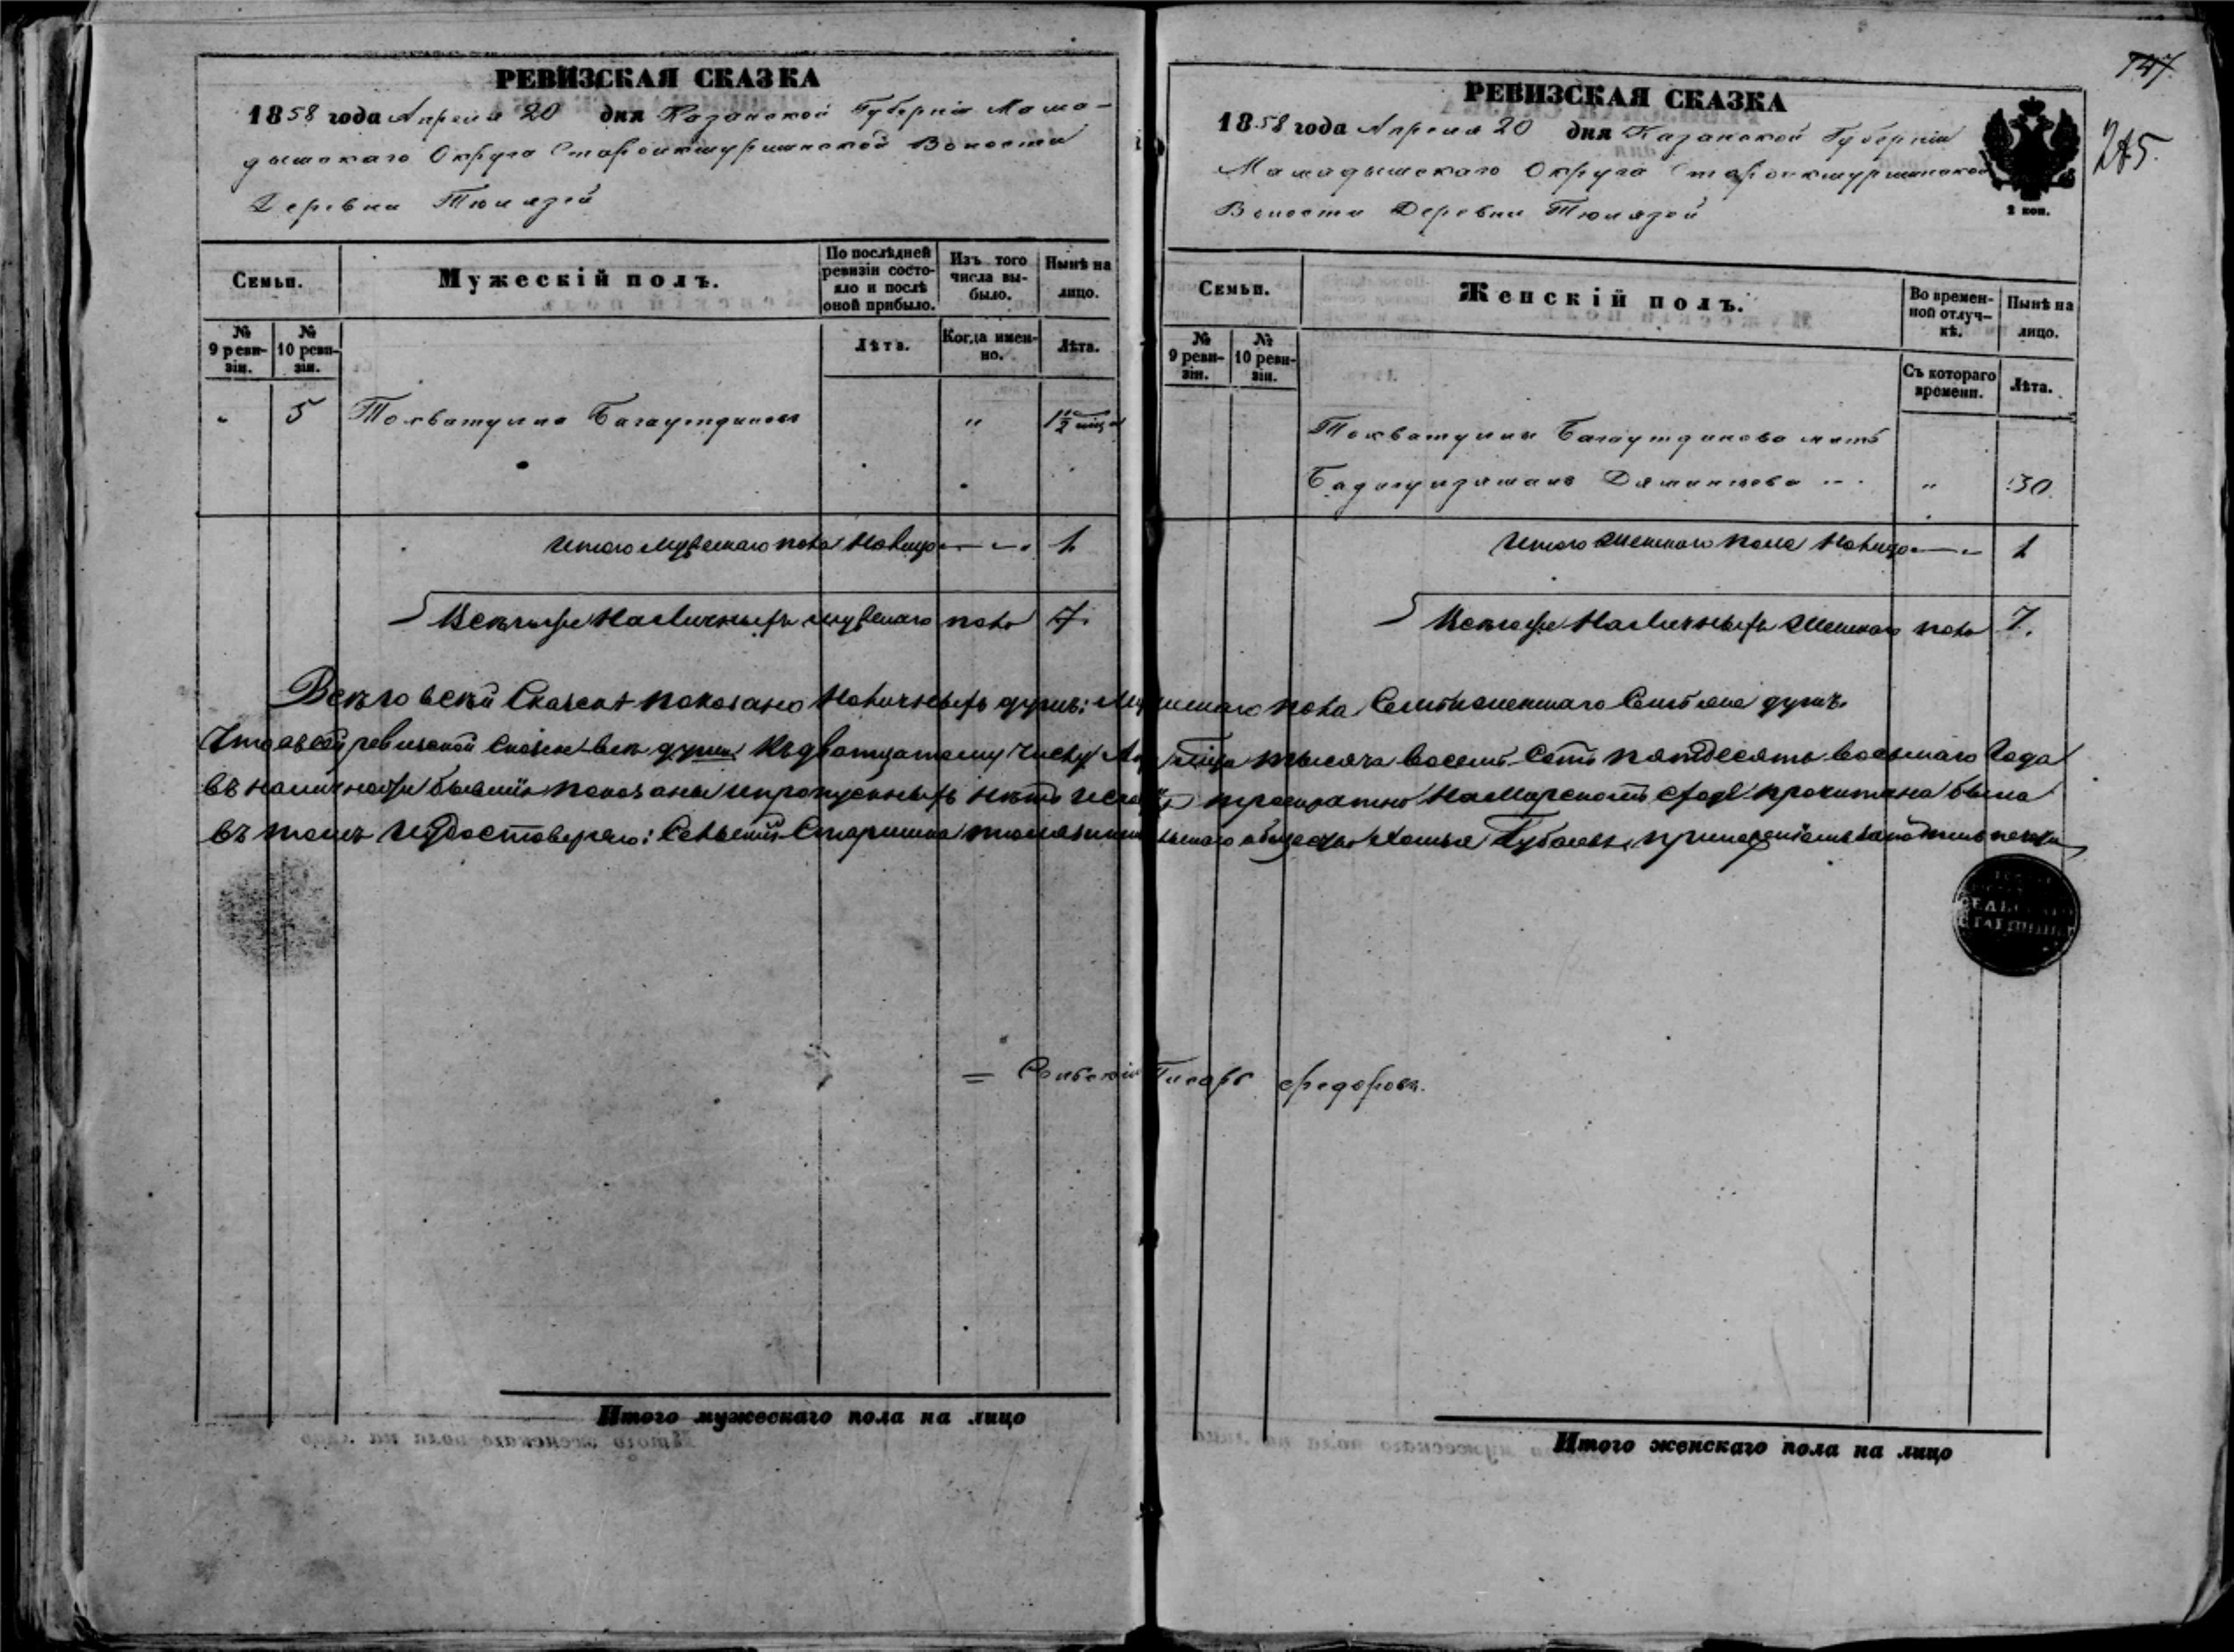 РЕВИЗСКАЯ СКАЗКА
1858 года Апреля 20 дня Казанской Губерніи Мама-
дышскаго Округа Волости
Деревни Тюлязей
Семьи.
Мужескій полъ.
По послѣдней ревизіи состояло и послѣ оной прибыло.
Изъ того числа выбыло.
Нынѣ на лицо.
№ 9 ревизіи.
№ 10 ревизіи.
Лѣта.
Когда именно.
Лѣта.
" 5 Тохватулла Багаутдиновъ " 1/2
Итого мужескаго пола налицо 1
Всего наличныхъ мужескаго пола 7.
РЕВИЗСКАЯ СКАЗКА
1858 года Апреля 20 дня Казанской Губерніи
Мамадышскаго Округа
Волости Деревни Тюлязей
2 коп.
747
285.
Семьи.
Женскій полъ.
Во временной отлучкѣ.
Нынѣ на лицо.
№ 9 ревизіи.
№ 10 ревизіи.
Съ котораго времени.
Лѣта.
Тохватуллы Багаутдинова мать
" 30.
Итого женскаго пола налицо 1
Всего наличныхъ женскаго пола 7.
Всего в сей Сказке показано наличныхъ душъ: пола Семь женскаго Семь же душъ.
Что въ сей ревизской сказке все души къ двадцатому числу тысяча восемь сотъ пятдесятъ восьмаго Года
въ наличности бывшія показаны и пропускныхъ нетъ троекратно на Мирскомъ сходе прочитана была
въ томъ и удостоверяю: Сельскій Старшина общества Губаевъ
СЕЛЬСКАГО
СТАРШИНЫ
= Сельскій Писарь Федоровъ.
Итого мужескаго пола на лицо
Итого женскаго пола на лицо